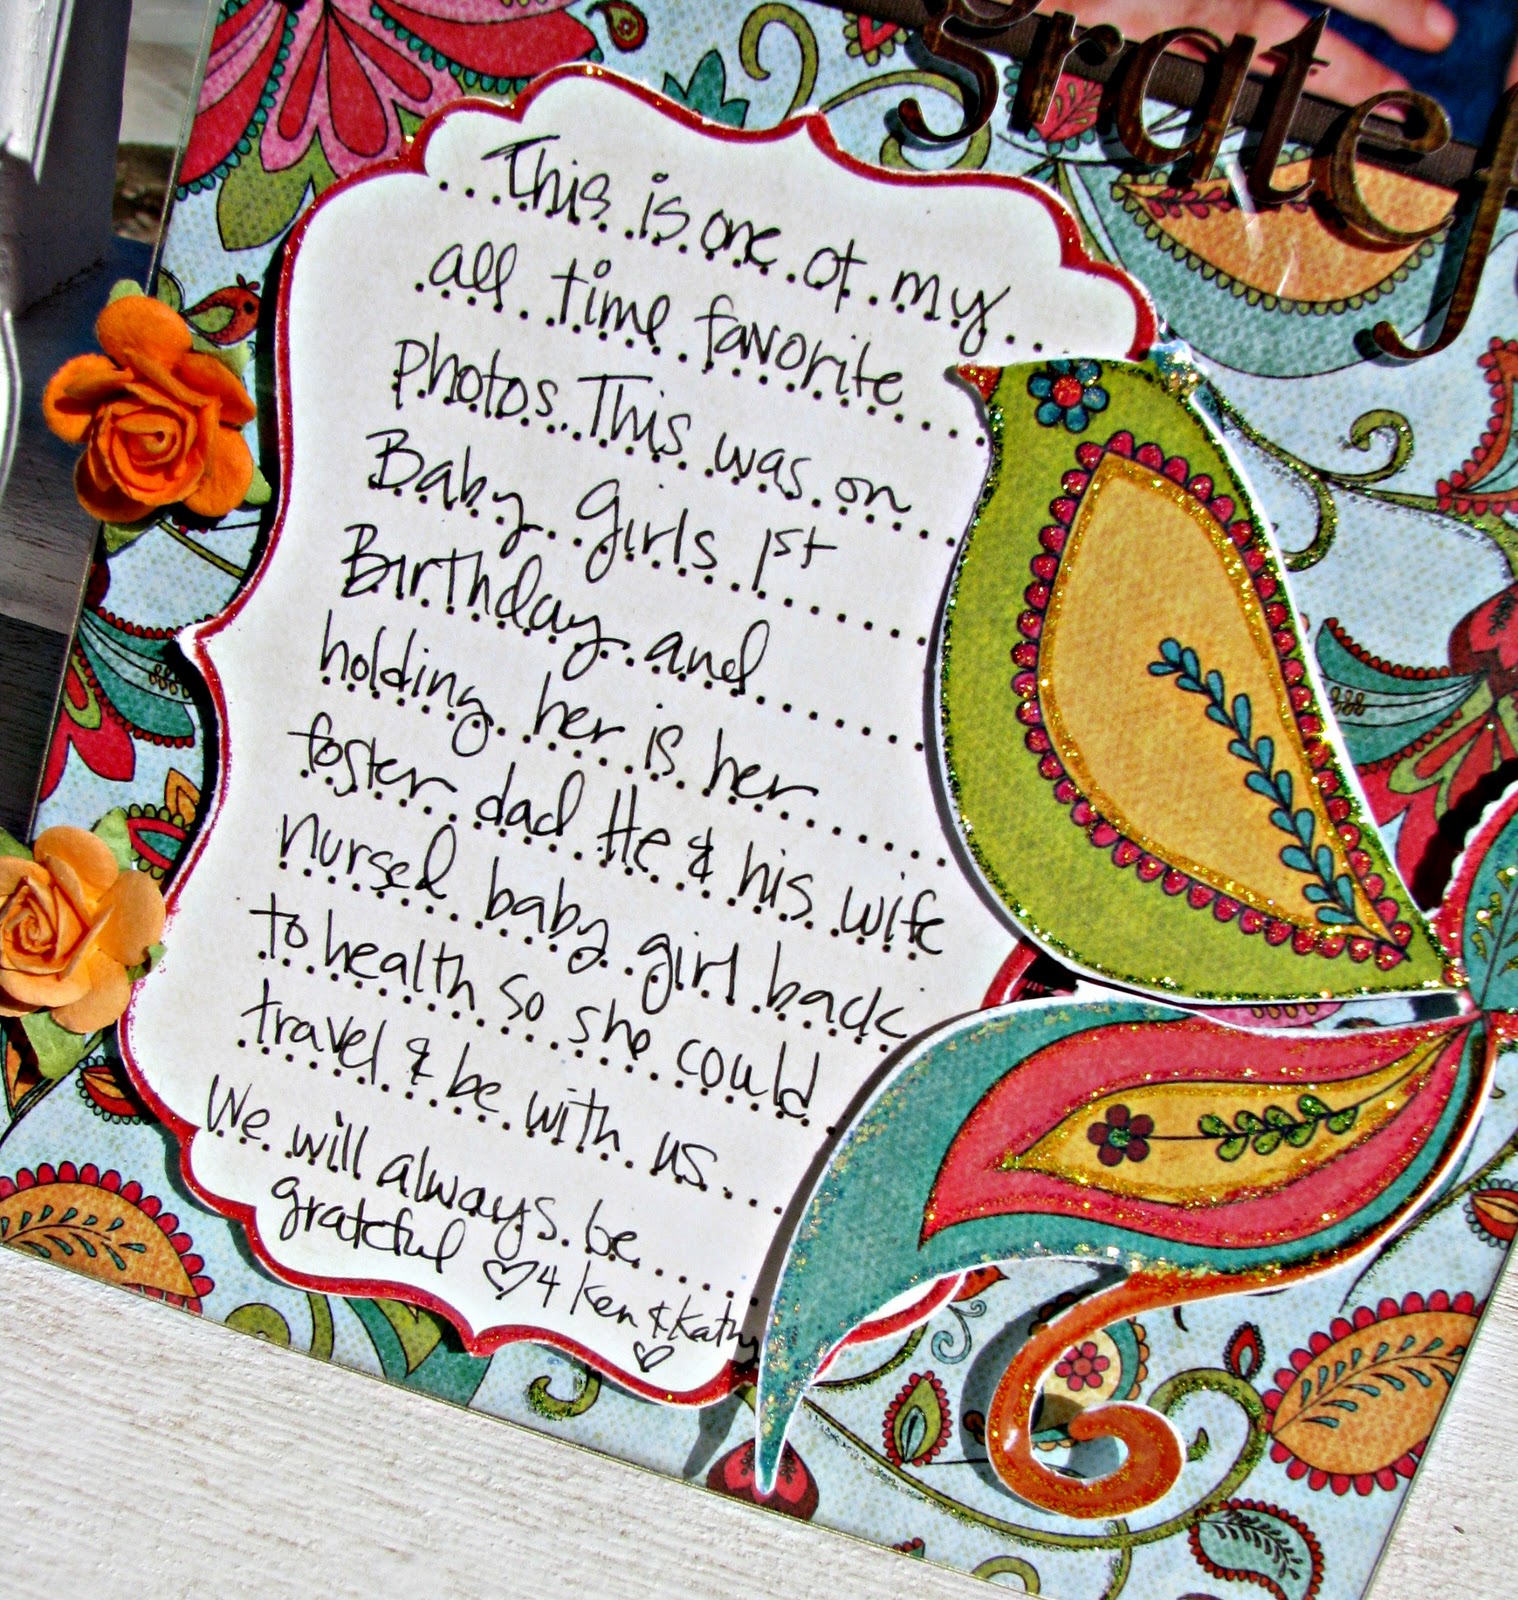 gratef
This is one of my
all time favorite
photos. This was on
Baby girls 1st
Birthday and
holding her is her
foster dad He & his wife
nursed baby girl back
to health so she could
travel & be with us
We will always be
grateful ♡ 4 Ken & Kathy
♡